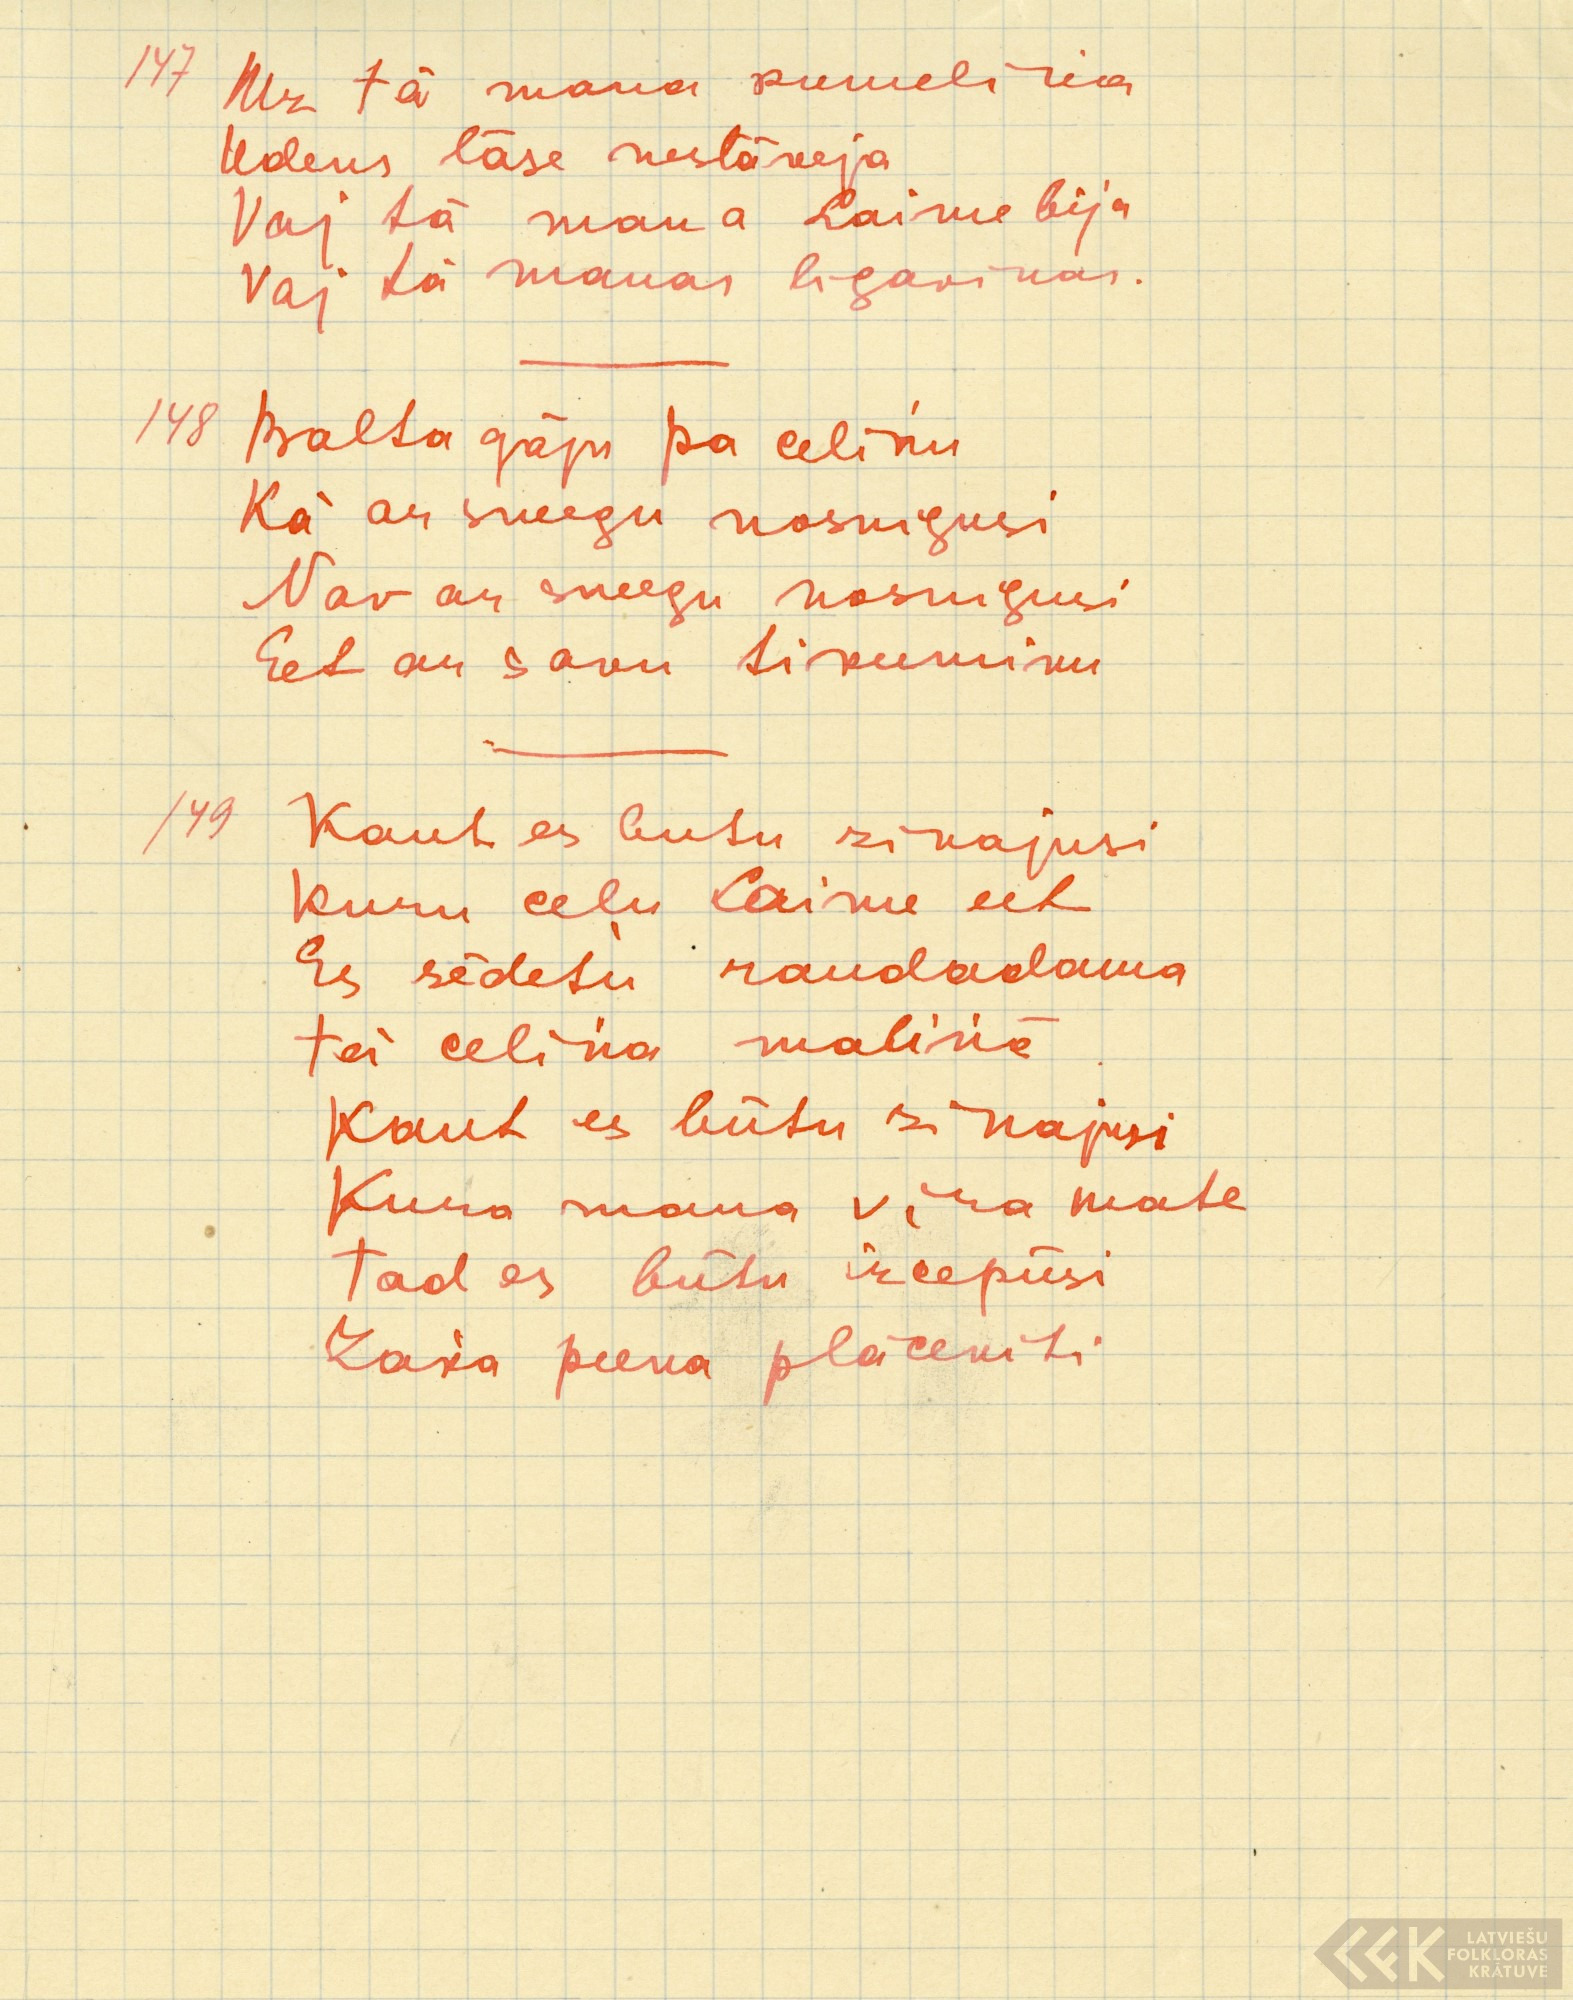 147 Uz tā mana kumeliņa
Udens lāse nestāveja
Vaj tā mana Laime bija
Vaj tā manas ligaviņas.
148 Balta gāju pa celiņu
Kā ar sneegu nosnigusi
Nav ar sneegu nosnigusi
Eet ar savu tikumiņu
149 Kaut es butu zinajusi
Kuru celu Laime eet
Es sēdetu raudadama
Tai celiņa maliņā
Kaut es būtu zinajusi
Kura mana vīra mate
Tad es būtu izcepūsi
Zaķa peena plāceniti
LATVIEŠU
FOLKLORAS
KRĀTUVE